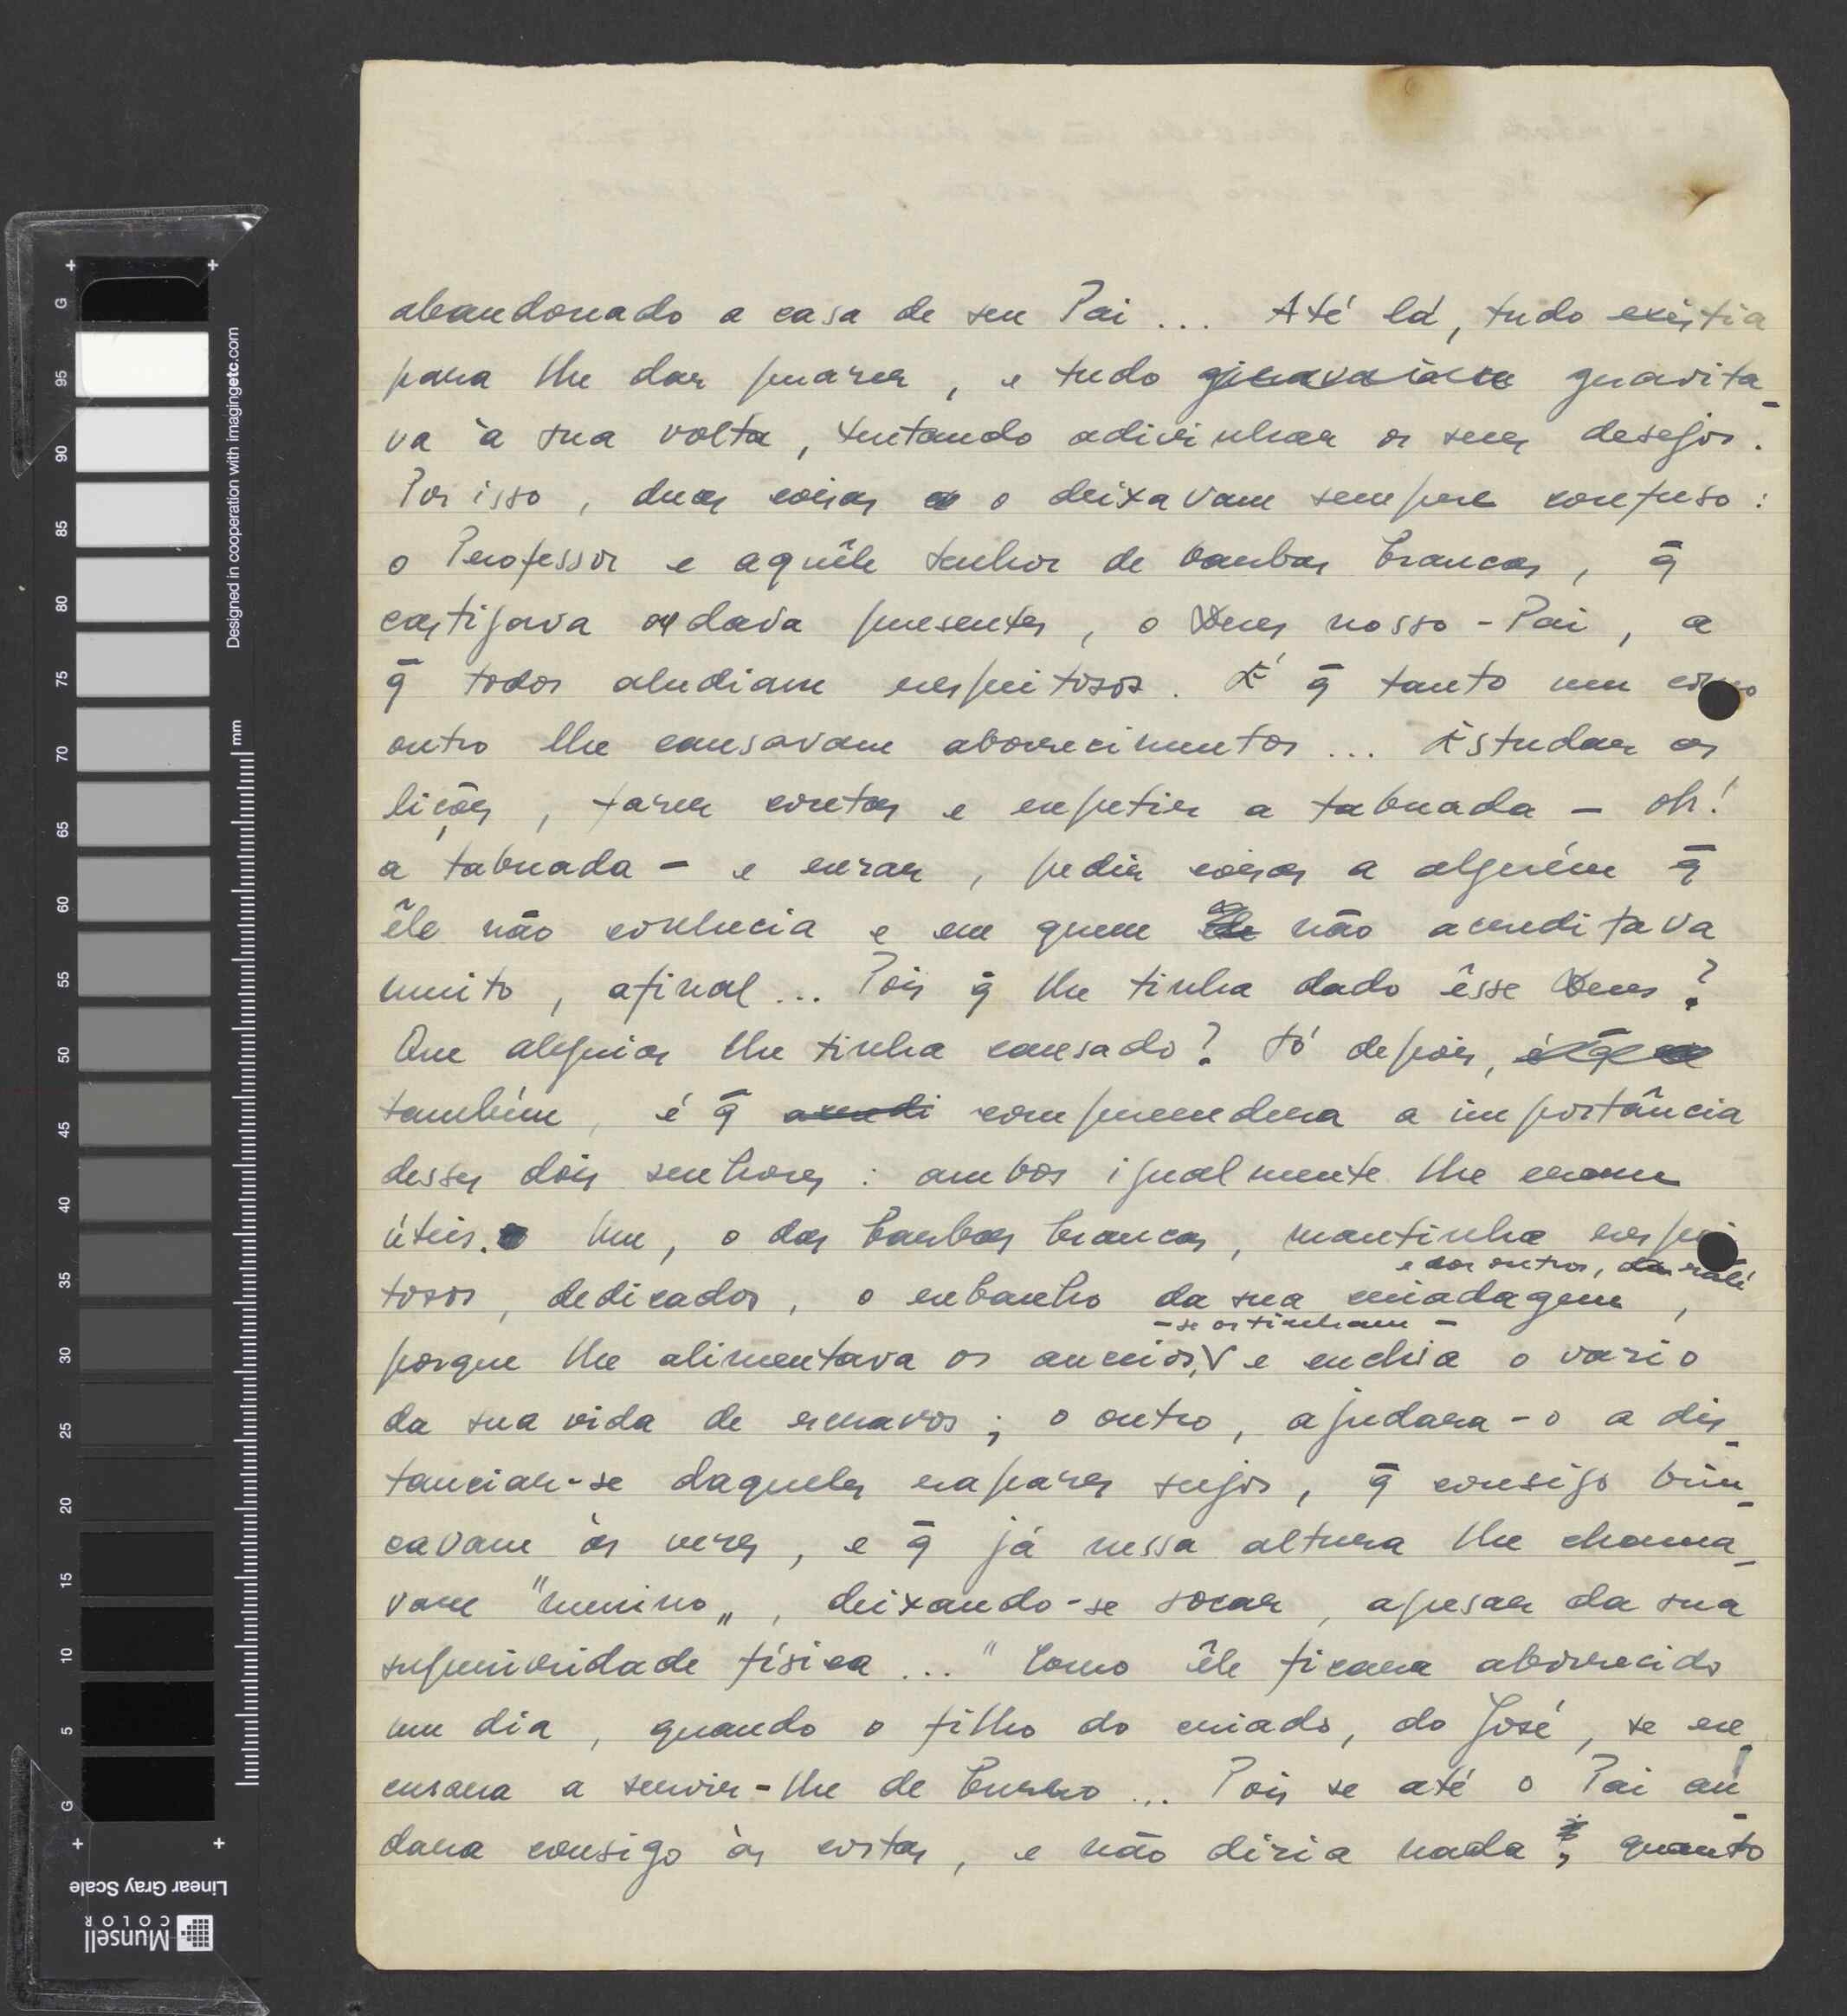 abandonado a casa de seu Pai ... Até lá, tudo existia
para lhe dar prazer, e tudo gravita-
va à sua volta, tentando adivinhar os seus desejos.
Por isso, duas coisas o deixavam sempre confuso:
o Professor e aquêle senhor de barbas brancas, q̄
castigava ou dava presentes, o Deus nosso-Pai, a
q̄ todos aludiam respeitosos. É q̄ tanto um como
outro lhe causavam aborrecimentos ... Estudar as
lições, fazer contas e repetir a tabuada — oh!
a tabuada — e rezar, pedir coisas a alguém q̄
êle não conhecia e em quem não acreditava
muito, afinal ... Pois q̄ lhe tinha dado êsse Deus?
Que alegrias lhe tinha causado? Só depois,
também, é q̄ acredi compreendera a importância
desses dois senhores: ambos igualmente lhe eram
úteis. Um, o das barbas brancas, mantinha respei
e dos outros, da ralé
tosos, dedicados, o rebanho da sua criadagem,
- se os tinham -
porque lhe alimentava os anseios, e enchia o vazio
da sua vida de escravos; o outro, ajudara-o a dis-
tanciar-se daqueles rapazes sujos, q̄ consigo brin-
cavam às vezes, e q̄ já nessa altura lhe chama-
vam "menino", deixando-se socar, apesar da sua
superioridade física ... " Como êle ficara aborrecido
um dia, quando o filho do criado, do José, se re-
cusara a servir-lhe de burro ... Pois se até o Pai an-
dara consigo às costas, e não diria nada, quanto
Designed in cooperation with imagingetc.com
mm
G
95
90
85
80
75
70
65
60
55
50
45
40
35
30
25
20
15
10
5
G
Linear Gray Scale
Munsell
COLOR